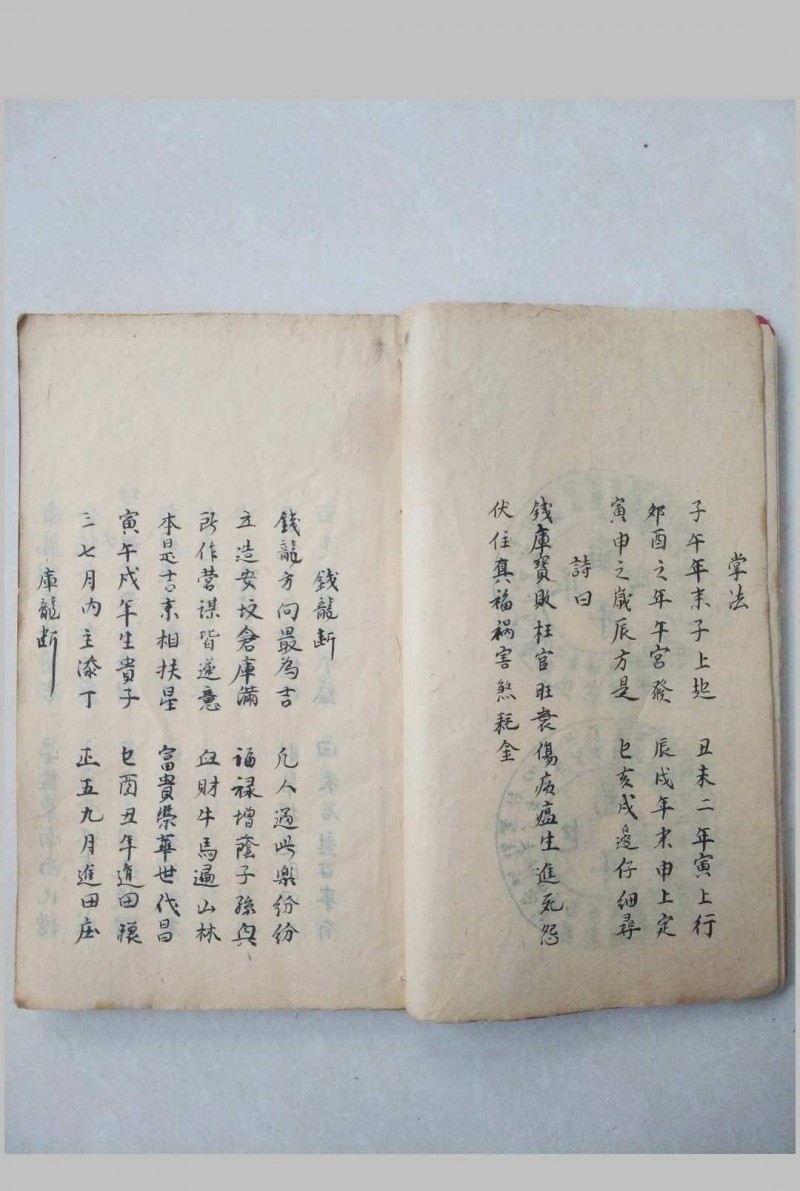 掌法
子午年來子上起 丑未二年寅上行
卯酉之年午宮發 辰戌年來申上定
寅申之歲辰方是 巳亥戌邊仔細尋
詩曰
錢庫寶敗枉官旺衰傷病瘟生進死怨
伏住真福禍害煞耗金
錢龍斷
錢龍方向最為吉 凡人過此樂份份
立造安坟倉庫滿 福禄增蔭子孫興
所作营謀皆遂意 血財牛馬遍山林
本是吉京相扶星 富貴榮華世代昌
寅午戌年生貴子 巳酉丑年進田
三七月內主添丁 正五九月進田庄
庫龍断